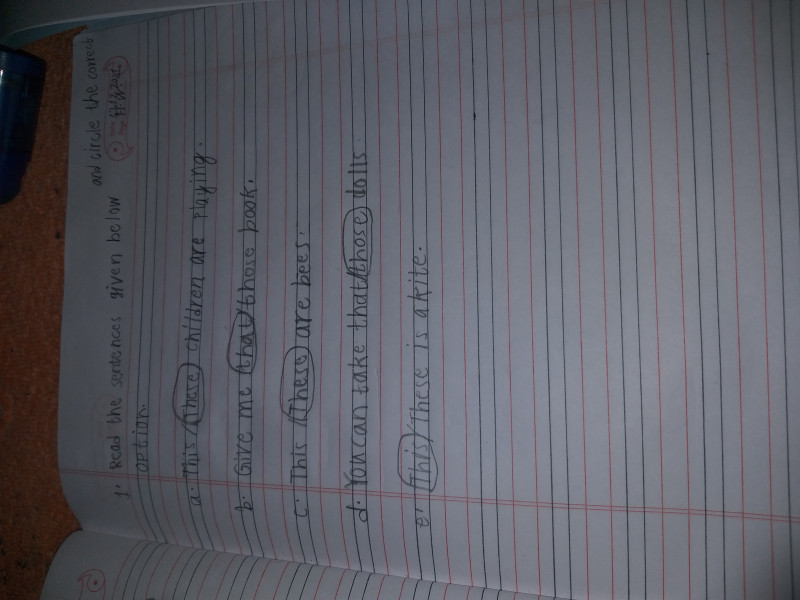 1. Read the sentences given below and circle the correct
option.
a. This / These children are playing.
b. Give me that/those book.
c. This / These are bees.
d. You can take that/those dolls.
e. This/These is a kite.